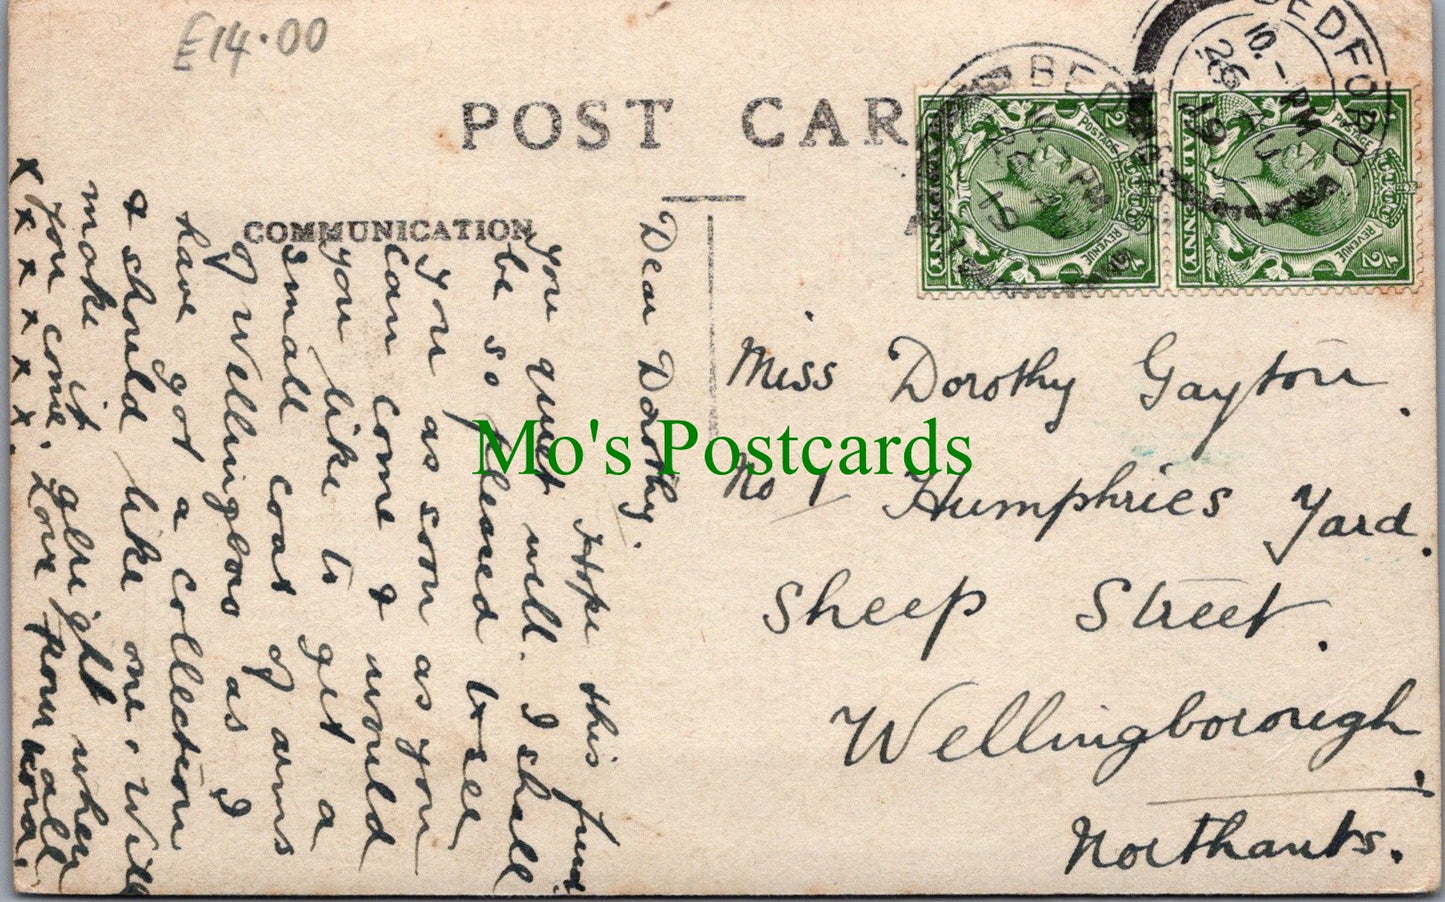 £14.00
POST CAR
COMMUNICATION
Dear Dorothy.
Hope this find
you quiet well. I shall
be so pleased to see
you as soon as you
can come & would
you like to get a
small coat of arms
of Wellingboro as I
have got a collection
& should like one, will
make it alright when
you come. Love from all
x x x x x x x
Miss Dorothy Gayton.
No 1 Humphries Yard.
Sheep Street.
Wellingborough.
Northants.
BEDFORD
10.- PM
26 AU
19
POSTAGE
REVENUE
1/2
HALFPENNY
POSTAGE
REVENUE
1/2
HALFPENNY
Mo's Postcards